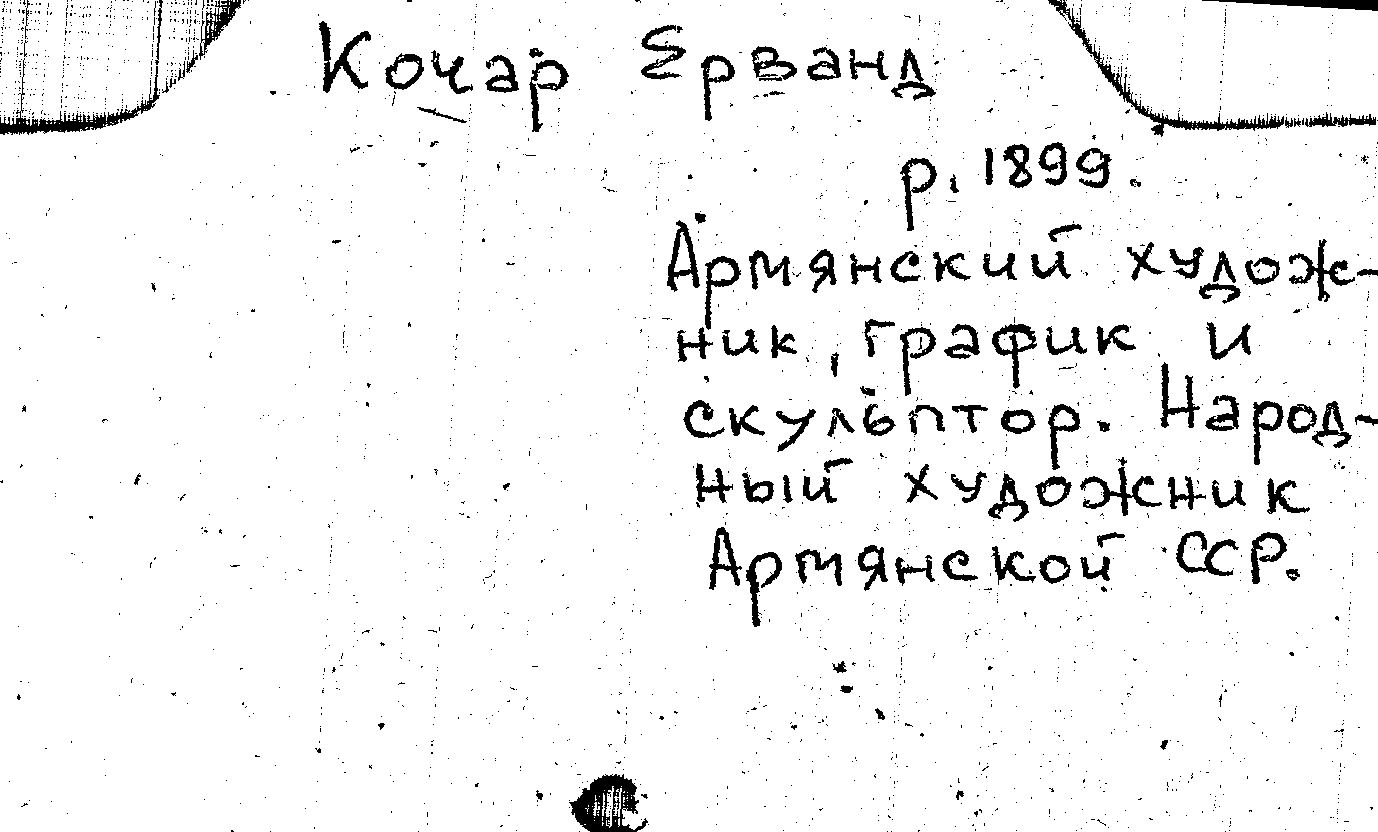 Кочар Ерванд
р. 1899.
Армянский худож-
ник, график и
скульптор. Народ-
ный художник
Армянской ССР.